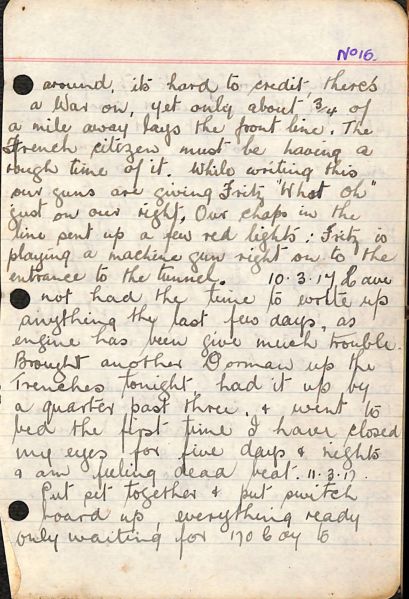 No 16.
around, its hard to credit, there's
a War on, yet only about 3/4 of
a mile away lays the front line. The
French citizens must be having a
rough time of it. While writing this
our guns are giving Fritz "What Oh"
just on our right. Our chaps in the
line sent up a few red lights: Fritz is
playing a machine gun right on to the
entrance to the tunnel. 10.3.17 Have
not had the time to write up
anything the last few days, as
engine has been give much trouble.
Brought another Dorman up the
Trenches tonight, had it up by
a quarter past three, & went to
bed the first time I have closed
my eyes for five days & nights
& am feeling dead beat. 11.3.17.
Put set together & put switch
board up, everything ready
only waiting for 170 Coy to